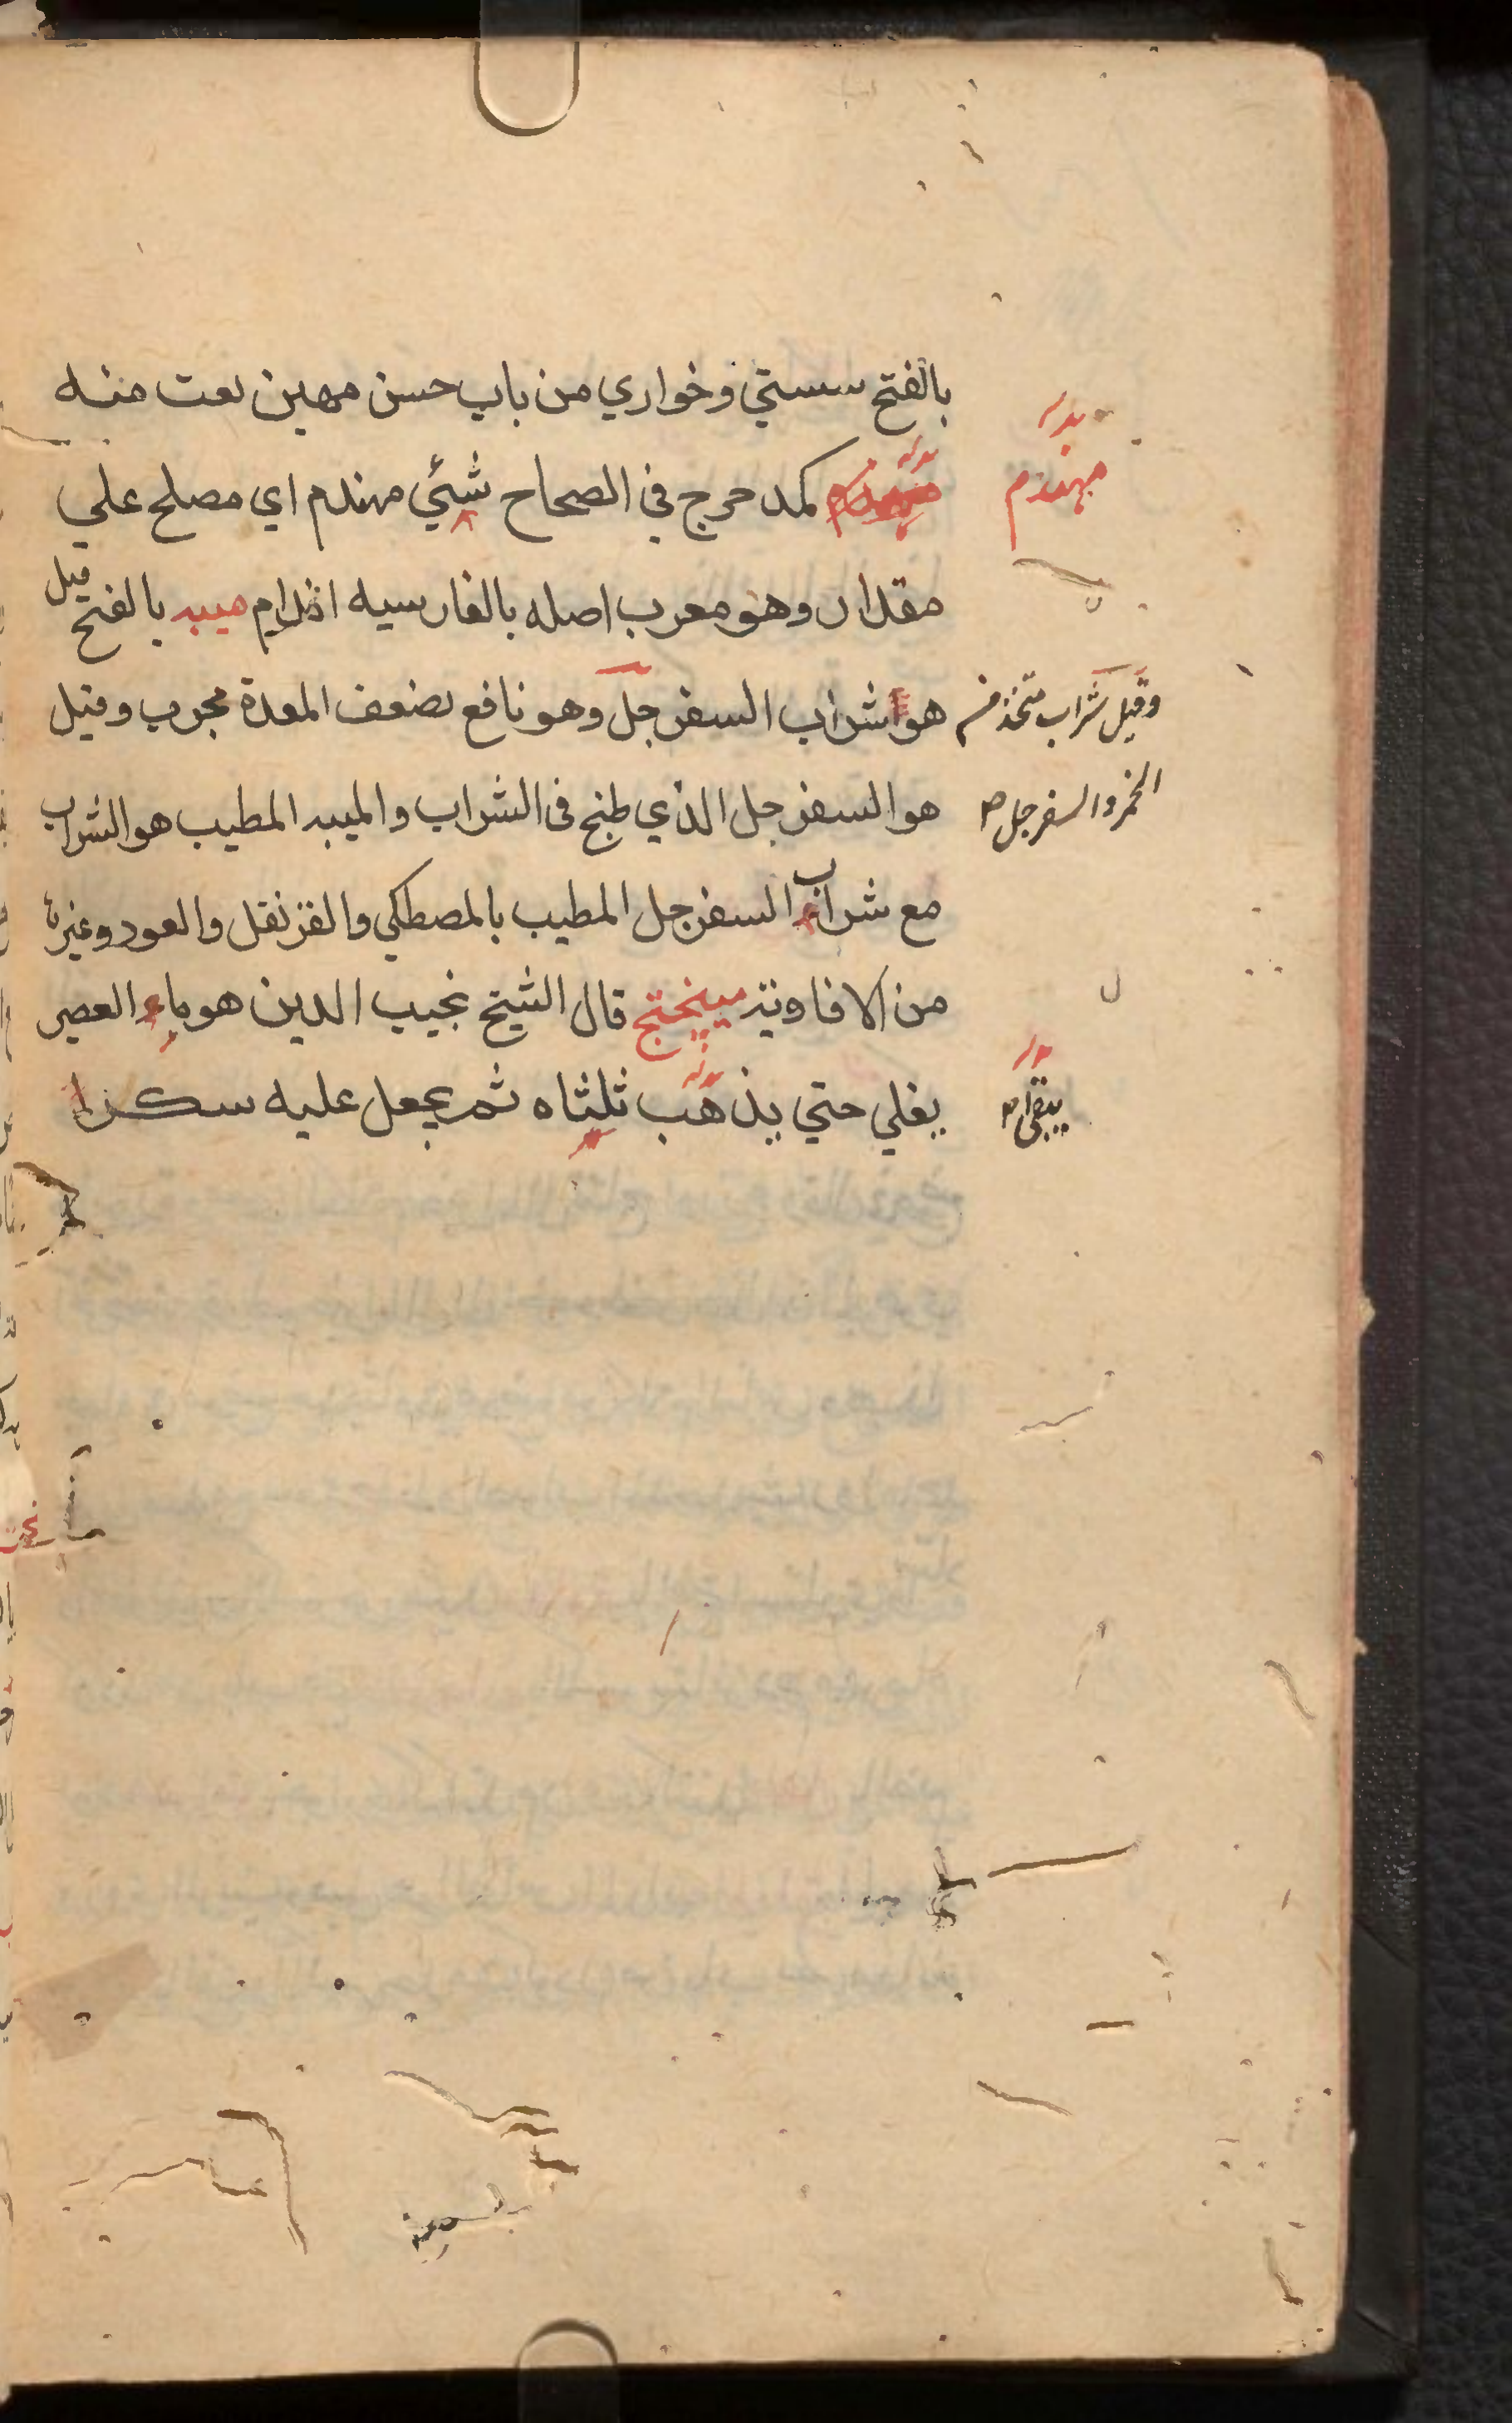 بالفتح سستي وخواري من باب حسن مهين نعت منه
مهندم
كمدحرج في الصحاح شئي مهندم اي مصلح علي
مقدار وهو معرب اصله بالفارسيه اندام ميبه بالفتح قيل
هو شراب السفرجل وهو نافع لضعف المعدة مجرب وقيل
وقيل شراب متخذ من
الخمر والسفرجل صح
هو السفرجل الذي طبخ في الشراب والميبه المطيب هو الشراب
مع شراب السفرجل المطيب بالمصطكي والقرنفل والعود وغيره
من الافاويه ميبختج قال الشيخ نجيب الدين هو ماء العصير
يغلي حتي يذهب ثلثاه ثم يجعل عليه سكرا